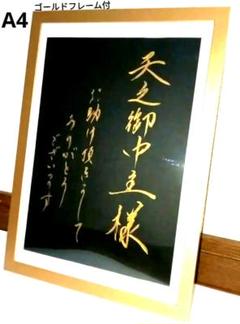 ゴールドフレーム付
A4
天之御中主様
お助け頂きまして
ありがとう
ございます